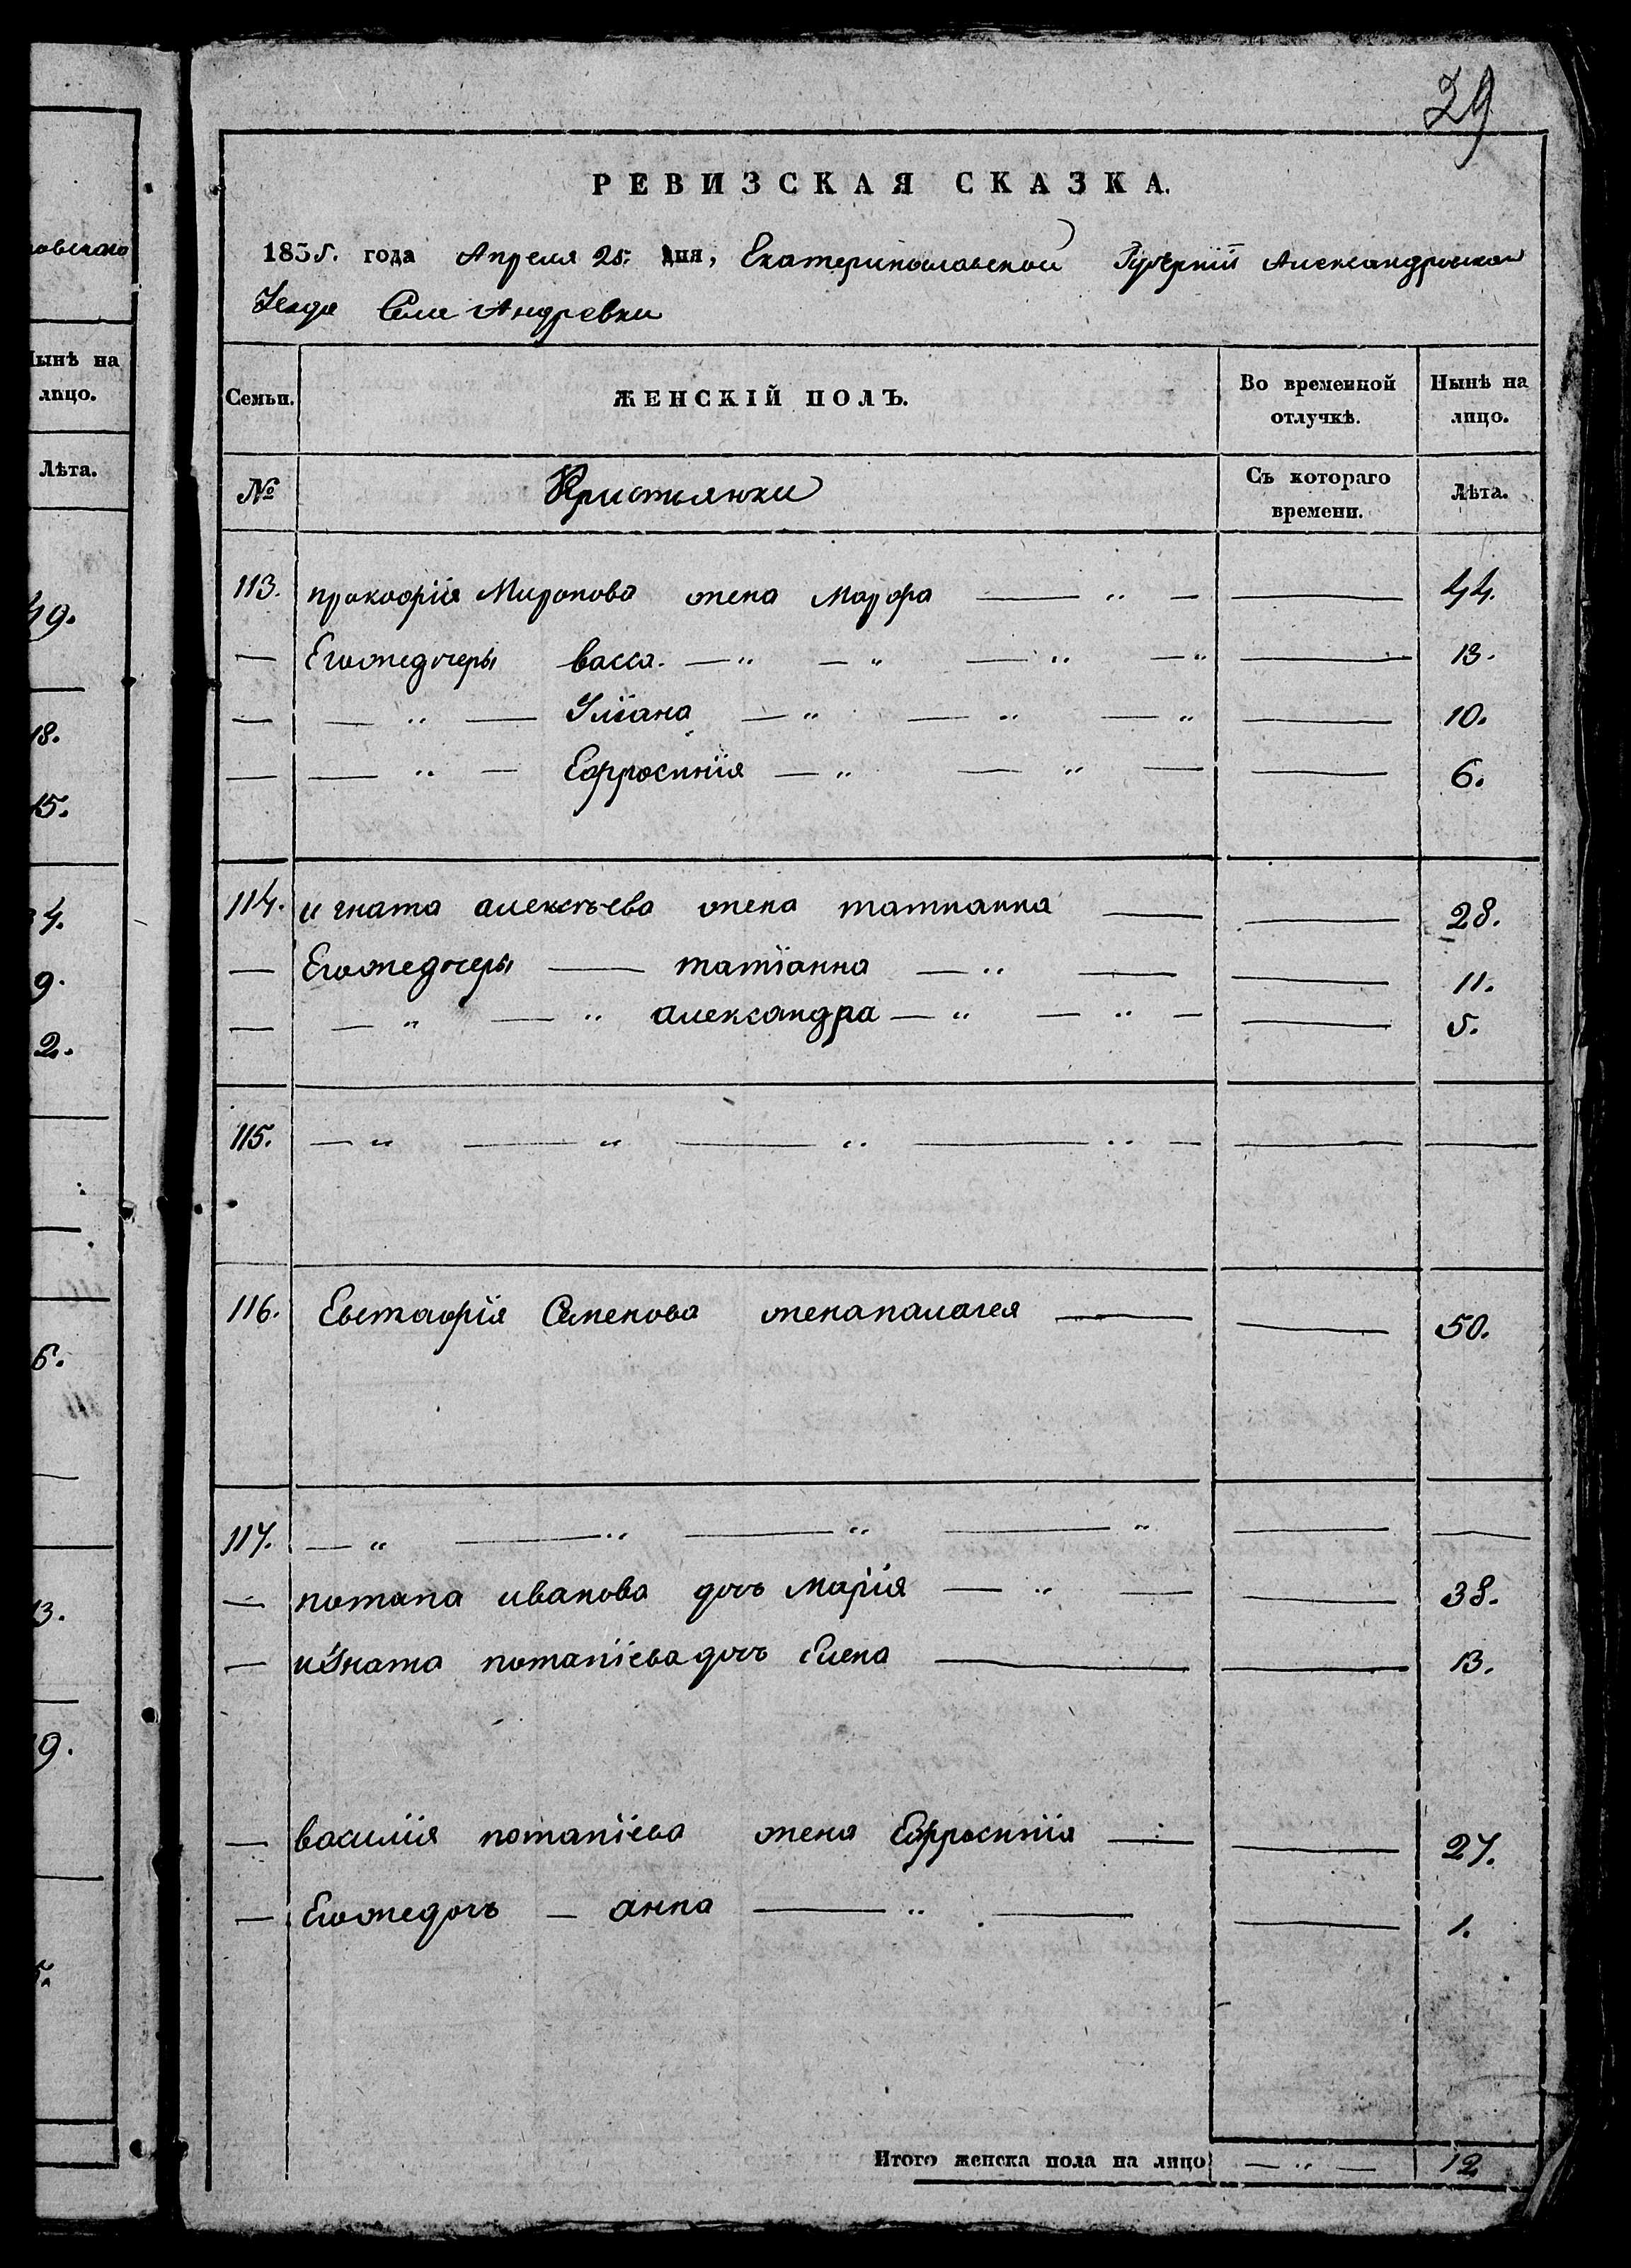 29
РЕВИЗСКАЯ СКАЗКА.
1835. года Апреля 25: дня, Екатеринославской Губѣрнїи Александровскои
Уезда Села Андревки
Семьи. ЖЕНСКІЙ ПОЛЪ. Во временной отлучкѣ. Нынѣ на лицо.
№ Кристьянки Съ котораго времени. Лѣта.
113. прокофїя Миронова жена Марфа — „ — — 44.
— Егожедочеры васса. — „ — „ — „ — „ — 13.
— — „ — Улїана — „ — „ — „ — 10.
— — „ — Ефросинїя — „ — „ — — 6.
114. игната алексѣева жена татианна — — 28.
— Егожедочеры — татїанна — „ — — 11.
— — „ — „ александра — „ — „ — — 5.
115. — „ — „ — „ — „ — — —
116. Евстафїя Семенова женапалагея — — 50.
117. — „ — „ — „ — „ — —
— потапа иванова дочь Марїя — „ — — 38.
— игната потапїева дочь Елена — — 13.
— василїя потапїева жена Ефросинїя — — 27.
— Егожедочь — анна — „ — — 1.
Итого женска пола на лицо — „ — 12
ынѣ на
лицо.
Лѣта.
49.
18.
15.
4.
9.
2.
6.
13.
9.
5.